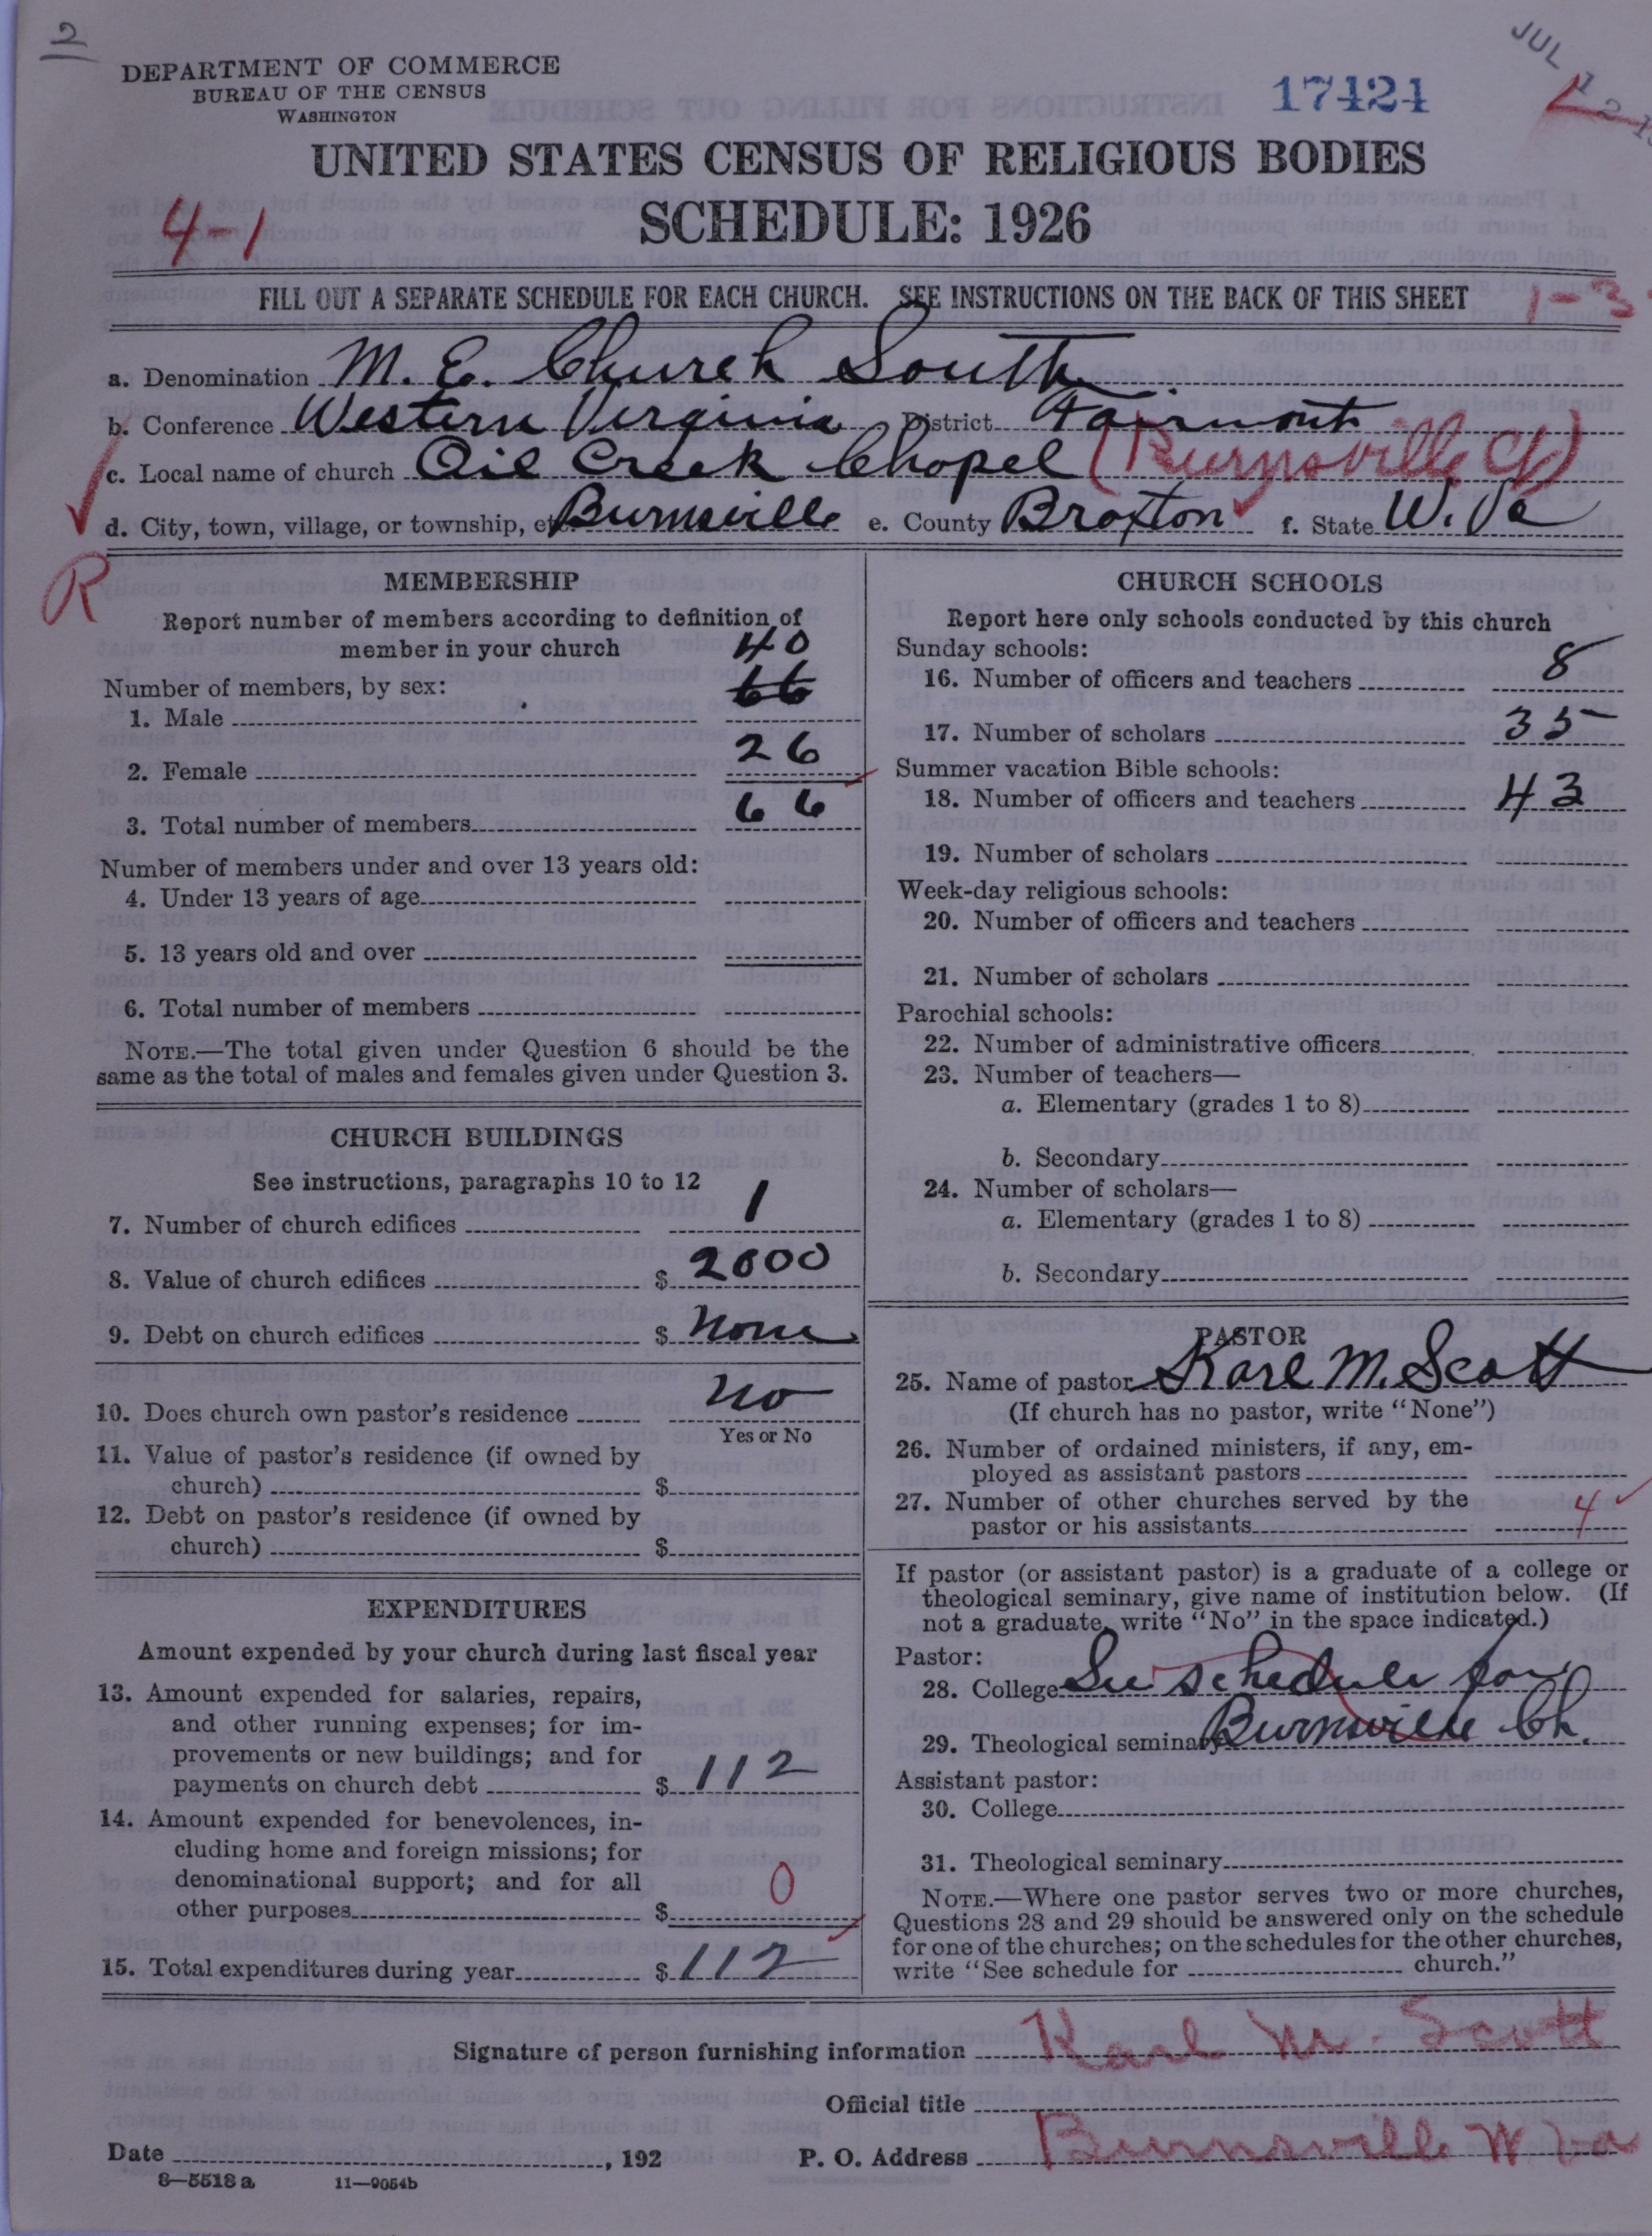 2
DEPARTMENT OF COMMERCE
BUREAU OF THE CENSUS
WASHINGTON
17424
JUL 12
UNITED STATES CENSUS OF RELIGIOUS BODIES
SCHEDULE: 1926
4-1
FILL OUT A SEPARATE SCHEDULE FOR EACH CHURCH. SEE INSTRUCTIONS ON THE BACK OF THIS SHEET
1-3
a. Denomination M. E. Church South
b. Conference Western Virginia District Fairmont
c. Local name of church Oil Creek Chapel (Burnsville Ct)
d. City, town, village, or township, etc. Burnsville e. County Braxton f. State W. Va
R
MEMBERSHIP
Report number of members according to definition of
member in your church
40
Number of members, by sex: 66
1. Male
2. Female 26
3. Total number of members 66
Number of members under and over 13 years old:
4. Under 13 years of age
5. 13 years old and over
6. Total number of members
NOTE.—The total given under Question 6 should be the
same as the total of males and females given under Question 3.
CHURCH BUILDINGS
See instructions, paragraphs 10 to 12
7. Number of church edifices 1
8. Value of church edifices $ 2000
9. Debt on church edifices $ None
10. Does church own pastor's residence No
Yes or No
11. Value of pastor's residence (if owned by
church) $
12. Debt on pastor's residence (if owned by
church) $
EXPENDITURES
Amount expended by your church during last fiscal year
13. Amount expended for salaries, repairs,
and other running expenses; for im-
provements or new buildings; and for
payments on church debt $ 112
14. Amount expended for benevolences, in-
cluding home and foreign missions; for
denominational support; and for all
other purposes $ 0
15. Total expenditures during year $ 112
CHURCH SCHOOLS
Report here only schools conducted by this church
Sunday schools:
16. Number of officers and teachers 8
17. Number of scholars 35
Summer vacation Bible schools:
18. Number of officers and teachers 43
19. Number of scholars
Week-day religious schools:
20. Number of officers and teachers
21. Number of scholars
Parochial schools:
22. Number of administrative officers
23. Number of teachers—
a. Elementary (grades 1 to 8)
b. Secondary
24. Number of scholars—
a. Elementary (grades 1 to 8)
b. Secondary
PASTOR
25. Name of pastor Karl M. Scott
(If church has no pastor, write "None")
26. Number of ordained ministers, if any, em-
ployed as assistant pastors
27. Number of other churches served by the
pastor or his assistants 4
If pastor (or assistant pastor) is a graduate of a college or
theological seminary, give name of institution below. (If
not a graduate, write "No" in the space indicated.)
Pastor:
28. College See schedule for
29. Theological seminary Burnsville Ch.
Assistant pastor:
30. College
31. Theological seminary
NOTE.—Where one pastor serves two or more churches,
Questions 28 and 29 should be answered only on the schedule
for one of the churches; on the schedules for the other churches,
write "See schedule for church."
Signature of person furnishing information Karl M. Scott
Official title
Date , 192 P. O. Address Burnsville W Va
8—5518 a 11—9054b